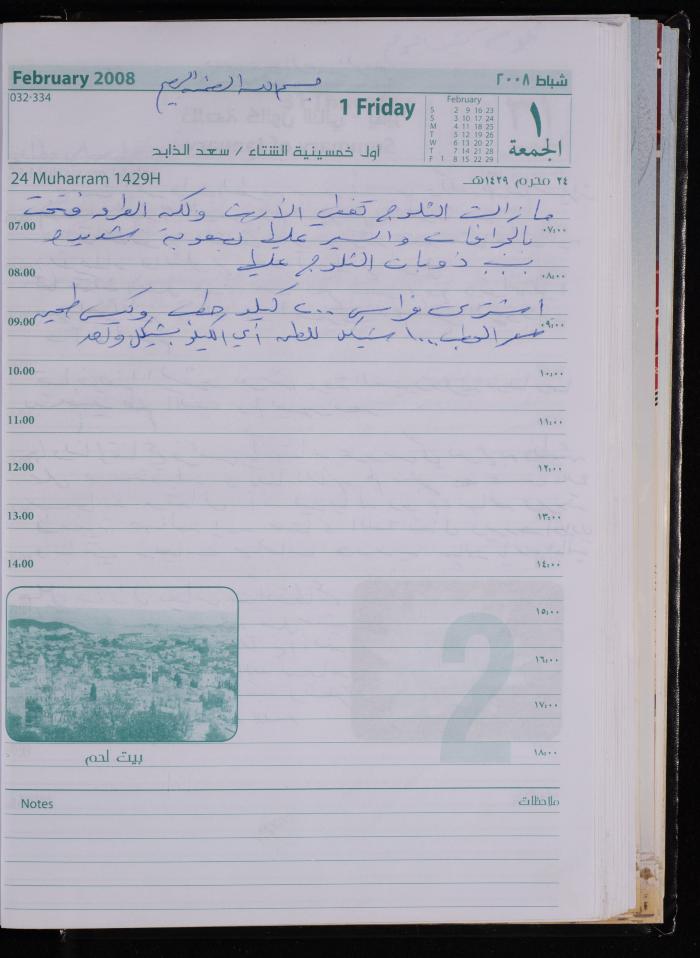 February 2008
بسم الله الرحمن الرحيم
شباط ٢٠٠٨
032-334
1 Friday
February
S 2 9 16 23
S 3 10 17 24
M 4 11 18 25
T 5 12 19 26
W 6 13 20 27
T 7 14 21 28
F 1 8 15 22 29
١
الجمعة
أول خمسينية الشتاء / سعد الذابح
24 Muharram 1429H
٢٤ محرم ١٤٢٩هـ
ما زالت الثلوج تغطي الأرض ولكن الطرق فتحت
07:00 ٠٧:٠٠
بالجرافات والسير عليها بصعوبة شديدة
بسبب ذوبان الثلوج عليها
08:00 ٠٨:٠٠
اشترى فراس ٢٠٠ كيلو حطب وكيس طحين
09:00 ٠٩:٠٠
سعر الحطب ١٠٠٠ شيكل للطن أي الكيلو بشيكل واحد
10:00 ١٠:٠٠
11:00 ١١:٠٠
12:00 ١٢:٠٠
13:00 ١٣:٠٠
14:00 ١٤:٠٠
١٥:٠٠
١٦:٠٠
١٧:٠٠
١٨:٠٠
2
بيت لحم
Notes
ملاحظات